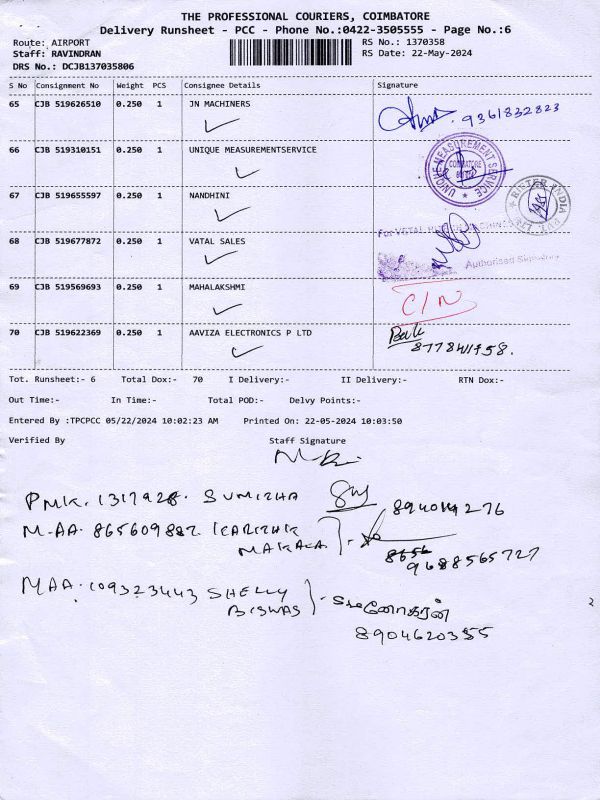 THE PROFESSIONAL COURIERS, COIMBATORE
Delivery Runsheet - PCC - Phone No.:0422-3505555 - Page No.:6
Route: AIRPORT RS No.: 1370358
Staff: RAVINDRAN RS Date: 22-May-2024
DRS No.: DCJB137035806
S No Consignment No Weight PCS Consignee Details Signature
65 CJB 519626510 0.250 1 JN MACHINERS
9361832823
66 CJB 519310151 0.250 1 UNIQUE MEASUREMENTSERVICE
UNIQUE MEASUREMENT SERVICE
COIMBATORE
67 CJB 519655597 0.250 1 NANDHINI
RIETER INDIA PVT. LTD
68 CJB 519677872 0.250 1 VATAL SALES
Authorised Signatory
69 CJB 519569693 0.250 1 MAHALAKSHMI
C/N
70 CJB 519622369 0.250 1 AAVIZA ELECTRONICS P LTD
Tot. Runsheet:- 6 Total Dox:- 70 I Delivery:- II Delivery:- RTN Dox:-
Out Time:- In Time:- Total POD:- Delvy Points:-
Entered By :TPCPCC 05/22/2024 10:02:23 AM Printed On: 22-05-2024 10:03:50
Verified By Staff Signature
PMK. 1317928. SUMITHA
M.AA. 865609882. KARTHIK
MAKALA
9688565727
MAA. 109323443 SHELLY
BISWAS
8904620355